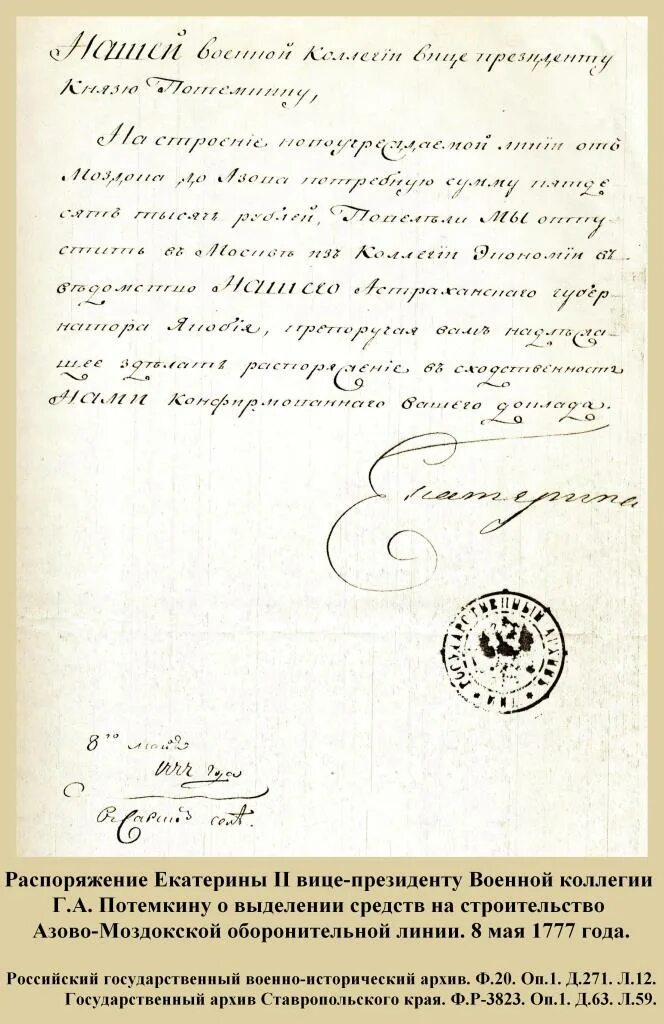 Нашей военной Коллегіи вице президенту
Князю Потемкину,
На строеніе новоучреждаемой линіи отъ
Моздока до Азова потребную сумму пятде
сятъ тысячь рублей, Повелѣли Мы отпу
стить въ Москвѣ изъ Коллегіи Экономіи въ
вѣдомство Нашего Астраханскаго губер-
натора Якобія, препоручая вамъ надлѣжа-
щее здѣлать распоряженіе въ сходственность
Нами конфирмованнаго вашего доклада.
Екатерина
ГОСУДАРСТВЕННЫЙ АРХИВЪ
8го маія
1777 года
Сарско селѣ.
Распоряжение Екатерины II вице-президенту Военной коллегии
Г.А. Потемкину о выделении средств на строительство
Азово-Моздокской оборонительной линии. 8 мая 1777 года.
Российский государственный военно-исторический архив. Ф.20. Оп.1. Д.271. Л.12.
Государственный архив Ставропольского края. Ф.Р-3823. Оп.1. Д.63. Л.59.